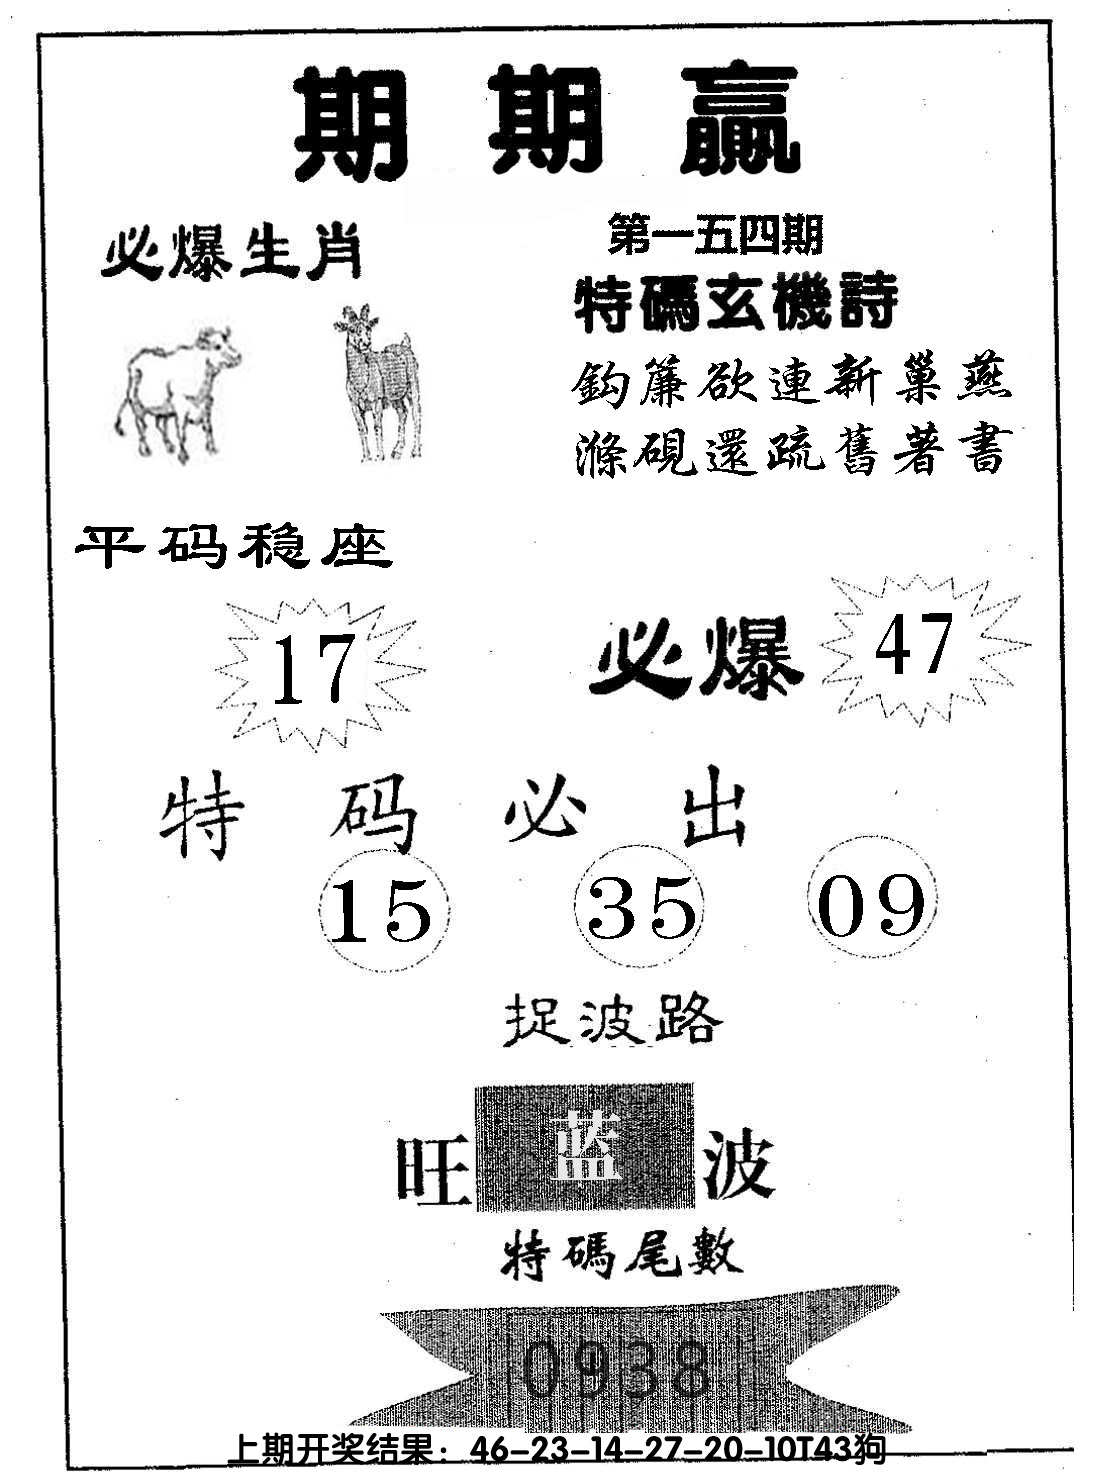 期期赢
必爆生肖
第一五四期
特碼玄機詩
鈎簾欲連新巢燕
滌硯還疏舊著書
平码稳座
17
必爆
47
特码必出
15 35 09
捉波路
旺蓝波
特碼尾數
0938
上期开奖结果：46-23-14-27-20-10T43狗